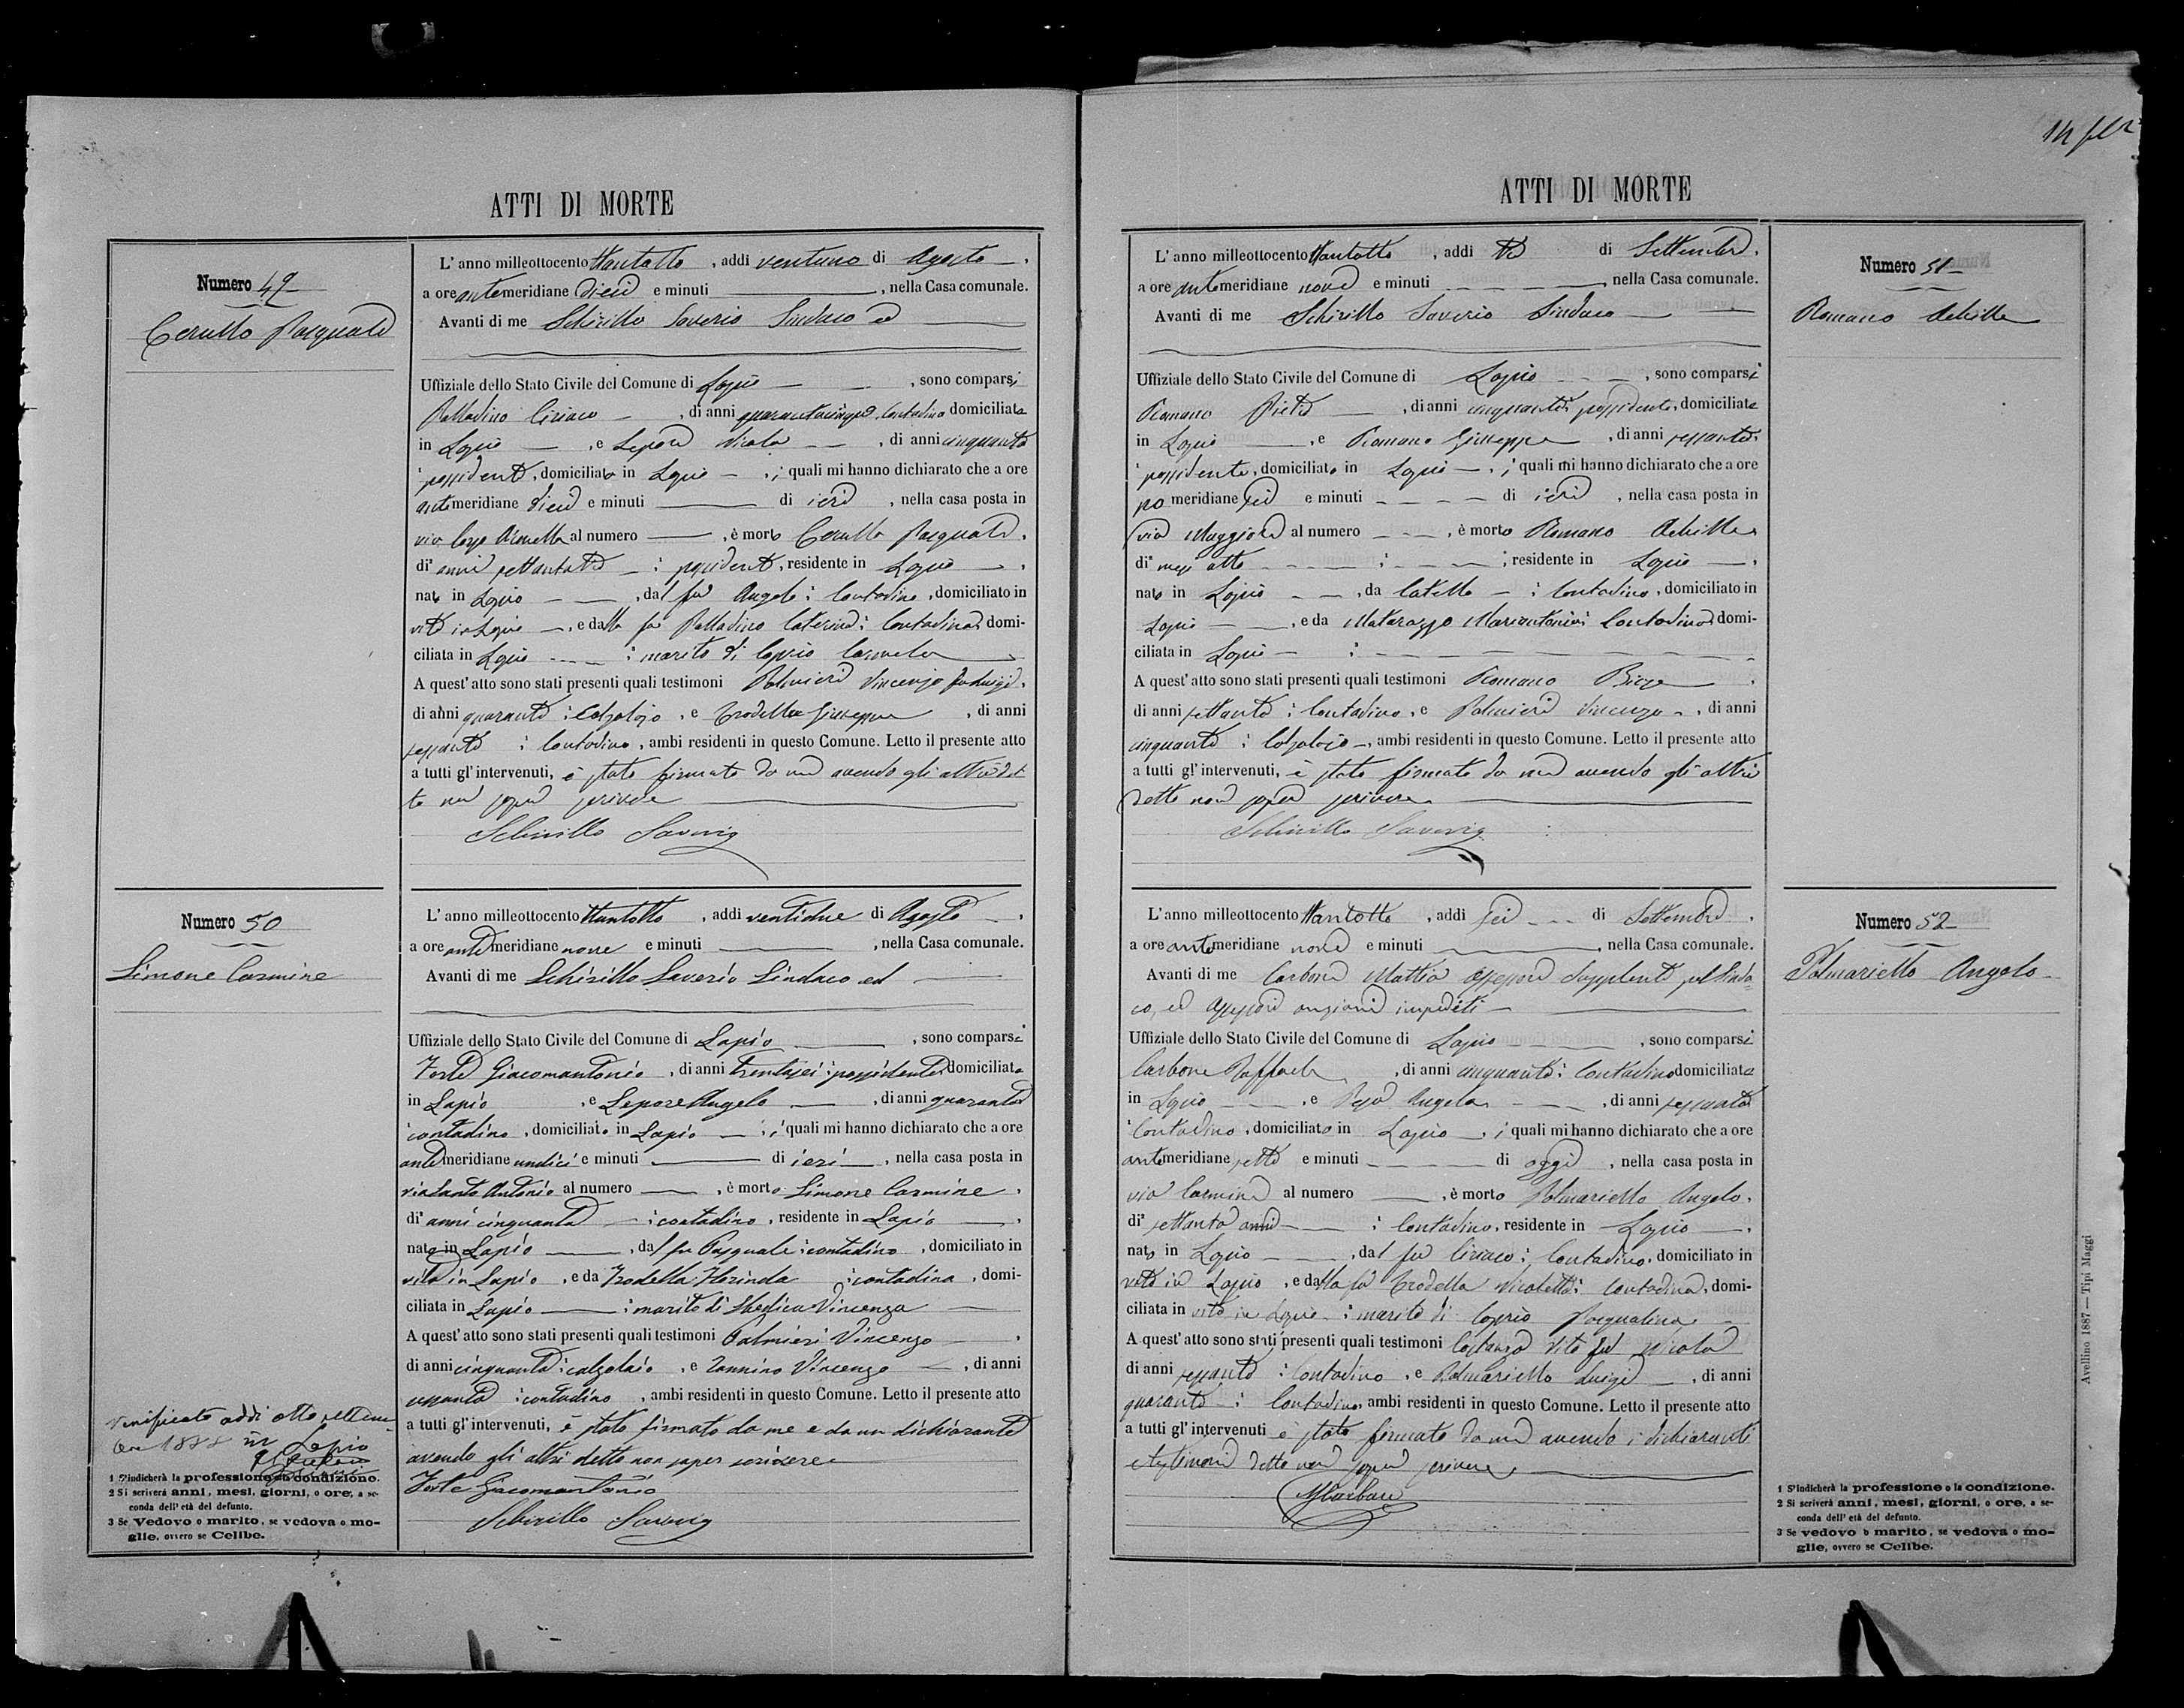 ATTI DI MORTE
Numero 49
Cerullo Pasquale
L' anno milleottocento ttantotto, addi ventuno di Agosto
a ore antemeridiane dieci e minuti , nella Casa comunale.
Avanti di me Schirillo Saverio Sindaco ed
Uffiziale dello Stato Civile del Comune di Lapio , sono comparsi
Palladino Ciriaco , di anni quarantacinque, contadino domiciliato
in Lapio , e Lepore Nicola , di anni cinquanta
possidente, domiciliato in Lapio , i quali mi hanno dichiarato che a ore
antemeridiane dieci e minuti di ieri , nella casa posta in
via largo al numero , è morto Cerullo Pasquale,
di anni settantatre : possidente, residente in Lapio
nato in Lapio , dal fu Angelo : contadino, domiciliato in
vita in Lapio , e dalla fu Palladino Caterina : contadina, domi-
ciliata in Lapio : marito di Caprio Carmela
A quest' atto sono stati presenti quali testimoni Palmieri Vincenzo fu Luigi,
di anni quaranta : Calzolajo, e Trodella Giuseppe , di anni
sessanta : contadino, ambi residenti in questo Comune. Letto il presente atto
a tutti gl' intervenuti, è stato firmato da me avendo gli altri det
to non saper scrivere
Schirillo Saverio
Numero 50
Simone Carmine
L' anno milleottocento ttantotto , addi ventidue di Agosto
a ore antemeridiane nove e minuti , nella Casa comunale.
Avanti di me Schirillo Saverio Sindaco ed
Uffiziale dello Stato Civile del Comune di Lapio , sono comparsi
Forte Giacomantonio , di anni trentasei : possidente, domiciliato
in Lapio , e Lepore Angelo , di anni quaranta
contadino, domiciliato in Lapio , i quali mi hanno dichiarato che a ore
antemeridiane undici e minuti di ieri , nella casa posta in
via Santo Antonio al numero , è morto Simone Carmine,
di anni cinquanta : contadino, residente in Lapio
nato in Lapio , dal fu Pasquale : contadino , domiciliato in
vita in Lapio , e da Trodella Florinda : contadina , domi-
ciliata in Lapio : marito di Vincenza
A quest' atto sono stati presenti quali testimoni Palmieri Vincenzo
di anni cinquanta : calzolaio , e Iannino Vincenzo , di anni
sessanta : contadino , ambi residenti in questo Comune. Letto il presente atto
a tutti gl' intervenuti, è stato firmato da me e da un dichiarante
avendo gli altri detto non saper scrivere
Forte Giacomantonio
Schirillo Saverio
Verificato addi otto settem
bre 1888 in Lapio
1 S'indicherà la professione o la condizione.
2 Si scriverà anni, mesi, giorni, o ore, a se-
conda dell' età del defunto.
3 Se Vedovo o marito, se vedova o mo-
glie, ovvero se Celibe.
ATTI DI MORTE
Numero 51
Romano Achille
L' anno milleottocento ttantotto , addi tre di Settembre.
a ore antemeridiane nove e minuti , nella Casa comunale.
Avanti di me Schirillo Saverio Sindaco
Uffiziale dello Stato Civile del Comune di Lapio , sono comparsi
Romano Pietro , di anni cinquanta : possidente, domiciliato
in Lapio , e Romano Giuseppe , di anni sessanta
possidente, domiciliato in Lapio , i quali mi hanno dichiarato che a ore
pomeridiane sei e minuti di ieri , nella casa posta in
via Maggiore al numero , è morto Romano Achille
di mesi otto : ; residente in Lapio
nato in Lapio , da Catello : contadino, domiciliato in
Lapio , e da Matarazzo Mariantonia : contadina, domi-
ciliata in Lapio :
A quest' atto sono stati presenti quali testimoni Romano
di anni settanta : contadino, e Palmieri Vincenzo , di anni
cinquanta : Calzolajo, ambi residenti in questo Comune. Letto il presente atto
a tutti gl' intervenuti, è stato firmato da me avendo gli altri
detto non saper scrivere
Schirillo Saverio
Numero 52
Palmariello Angelo
L' anno milleottocento ttantotto , addi sei di Settembre.
a ore antemeridiane nove e minuti , nella Casa comunale.
Avanti di me Carbone Mattia Assessore Supplente pel Sinda
co, ed Assessore anziani impediti
Uffiziale dello Stato Civile del Comune di Lapio , sono comparsi
Carbone Raffaele , di anni cinquanta : contadino domiciliato
in Lapio , e Angelo , di anni sessanta
contadino, domiciliato in Lapio , i quali mi hanno dichiarato che a ore
antemeridiane sette e minuti di oggi , nella casa posta in
via Carmine al numero , è morto Palmariello Angelo,
di settanta anni : contadino, residente in Lapio
nato in Lapio , dal fu Ciriaco : contadino, domiciliato in
vita in Lapio , e dalla fu Trodella Nicoletta : contadina, domi-
ciliata in vita in Lapio : marito di Caprio Pasqualina
A quest' atto sono stati presenti quali testimoni Costanzo Vito fu Nicola
di anni sessanta : contadino, e Palmariello Luigi , di anni
quaranta : contadino, ambi residenti in questo Comune. Letto il presente atto
a tutti gl' intervenuti è stato firmato da me avendo i dichiaranti
e testimoni detto non saper scrivere
MCarbone
1 S'indicherà la professione o la condizione.
2 Si scriverà anni, mesi, giorni, o ore, a se-
conda dell' età del defunto.
3 Se vedovo o marito, se vedova o mo-
glie, ovvero se Celibe.
Avellino 1887 — Tipi Maggi